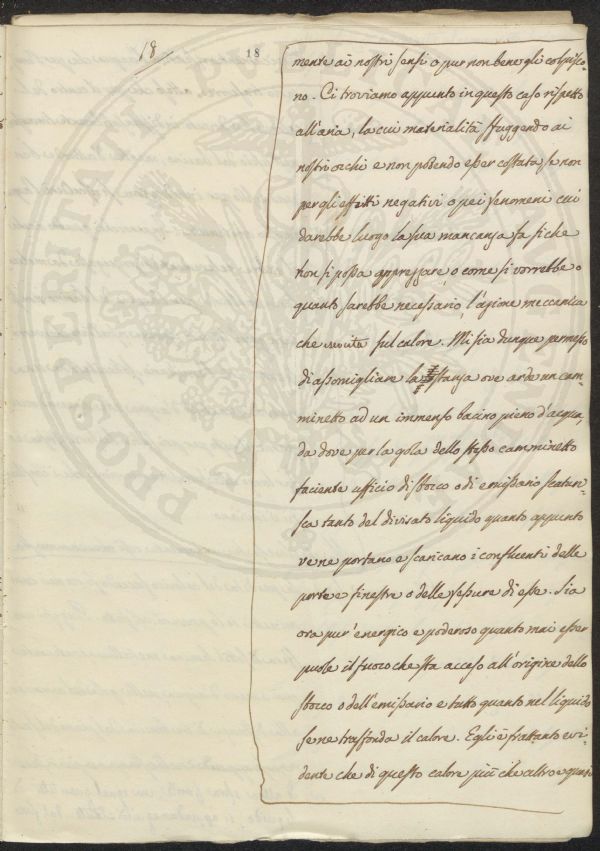 18 18
mente ai nostri sensi o pur non bene gli colpisco-
no. Ci troviamo appunto in questo caso rispetto
all'aria, la cui materialità sfuggendo ai
nostri occhi e non potendo esser costata se non
per gli effetti negativi o pei fenomeni cui
darebbe luogo la sua mancanza fa sì che
non si possa apprezzare, o come si vorrebbe o
quanto sarebbe necessario, l'azione meccanica
che sul calore. Mi sia dunque permesso
di assomigliare la stanza ove arde un cam-
minetto ad un immenso bacino pieno d'acqua,
da dove per la gola dello stesso camminetto
faciente ufficio di sbocco o di emissario scaturi-
sca tanto del divisato liquido quanto appunto
ve ne portano e scaricano i confluenti delle
porte e finestre o delle fessure di esse. Sia
ora pur' energico e poderoso quanto mai esser
puole il fuoco che sta acceso all'origine dello
sbocco o dell'emissario e tutto quanto nel liquido
se ne trasfonda il calore. Egli è frattanto evi-
dente che di questo calore più che altro e quasi
PROSPERITATI PUBLICAE